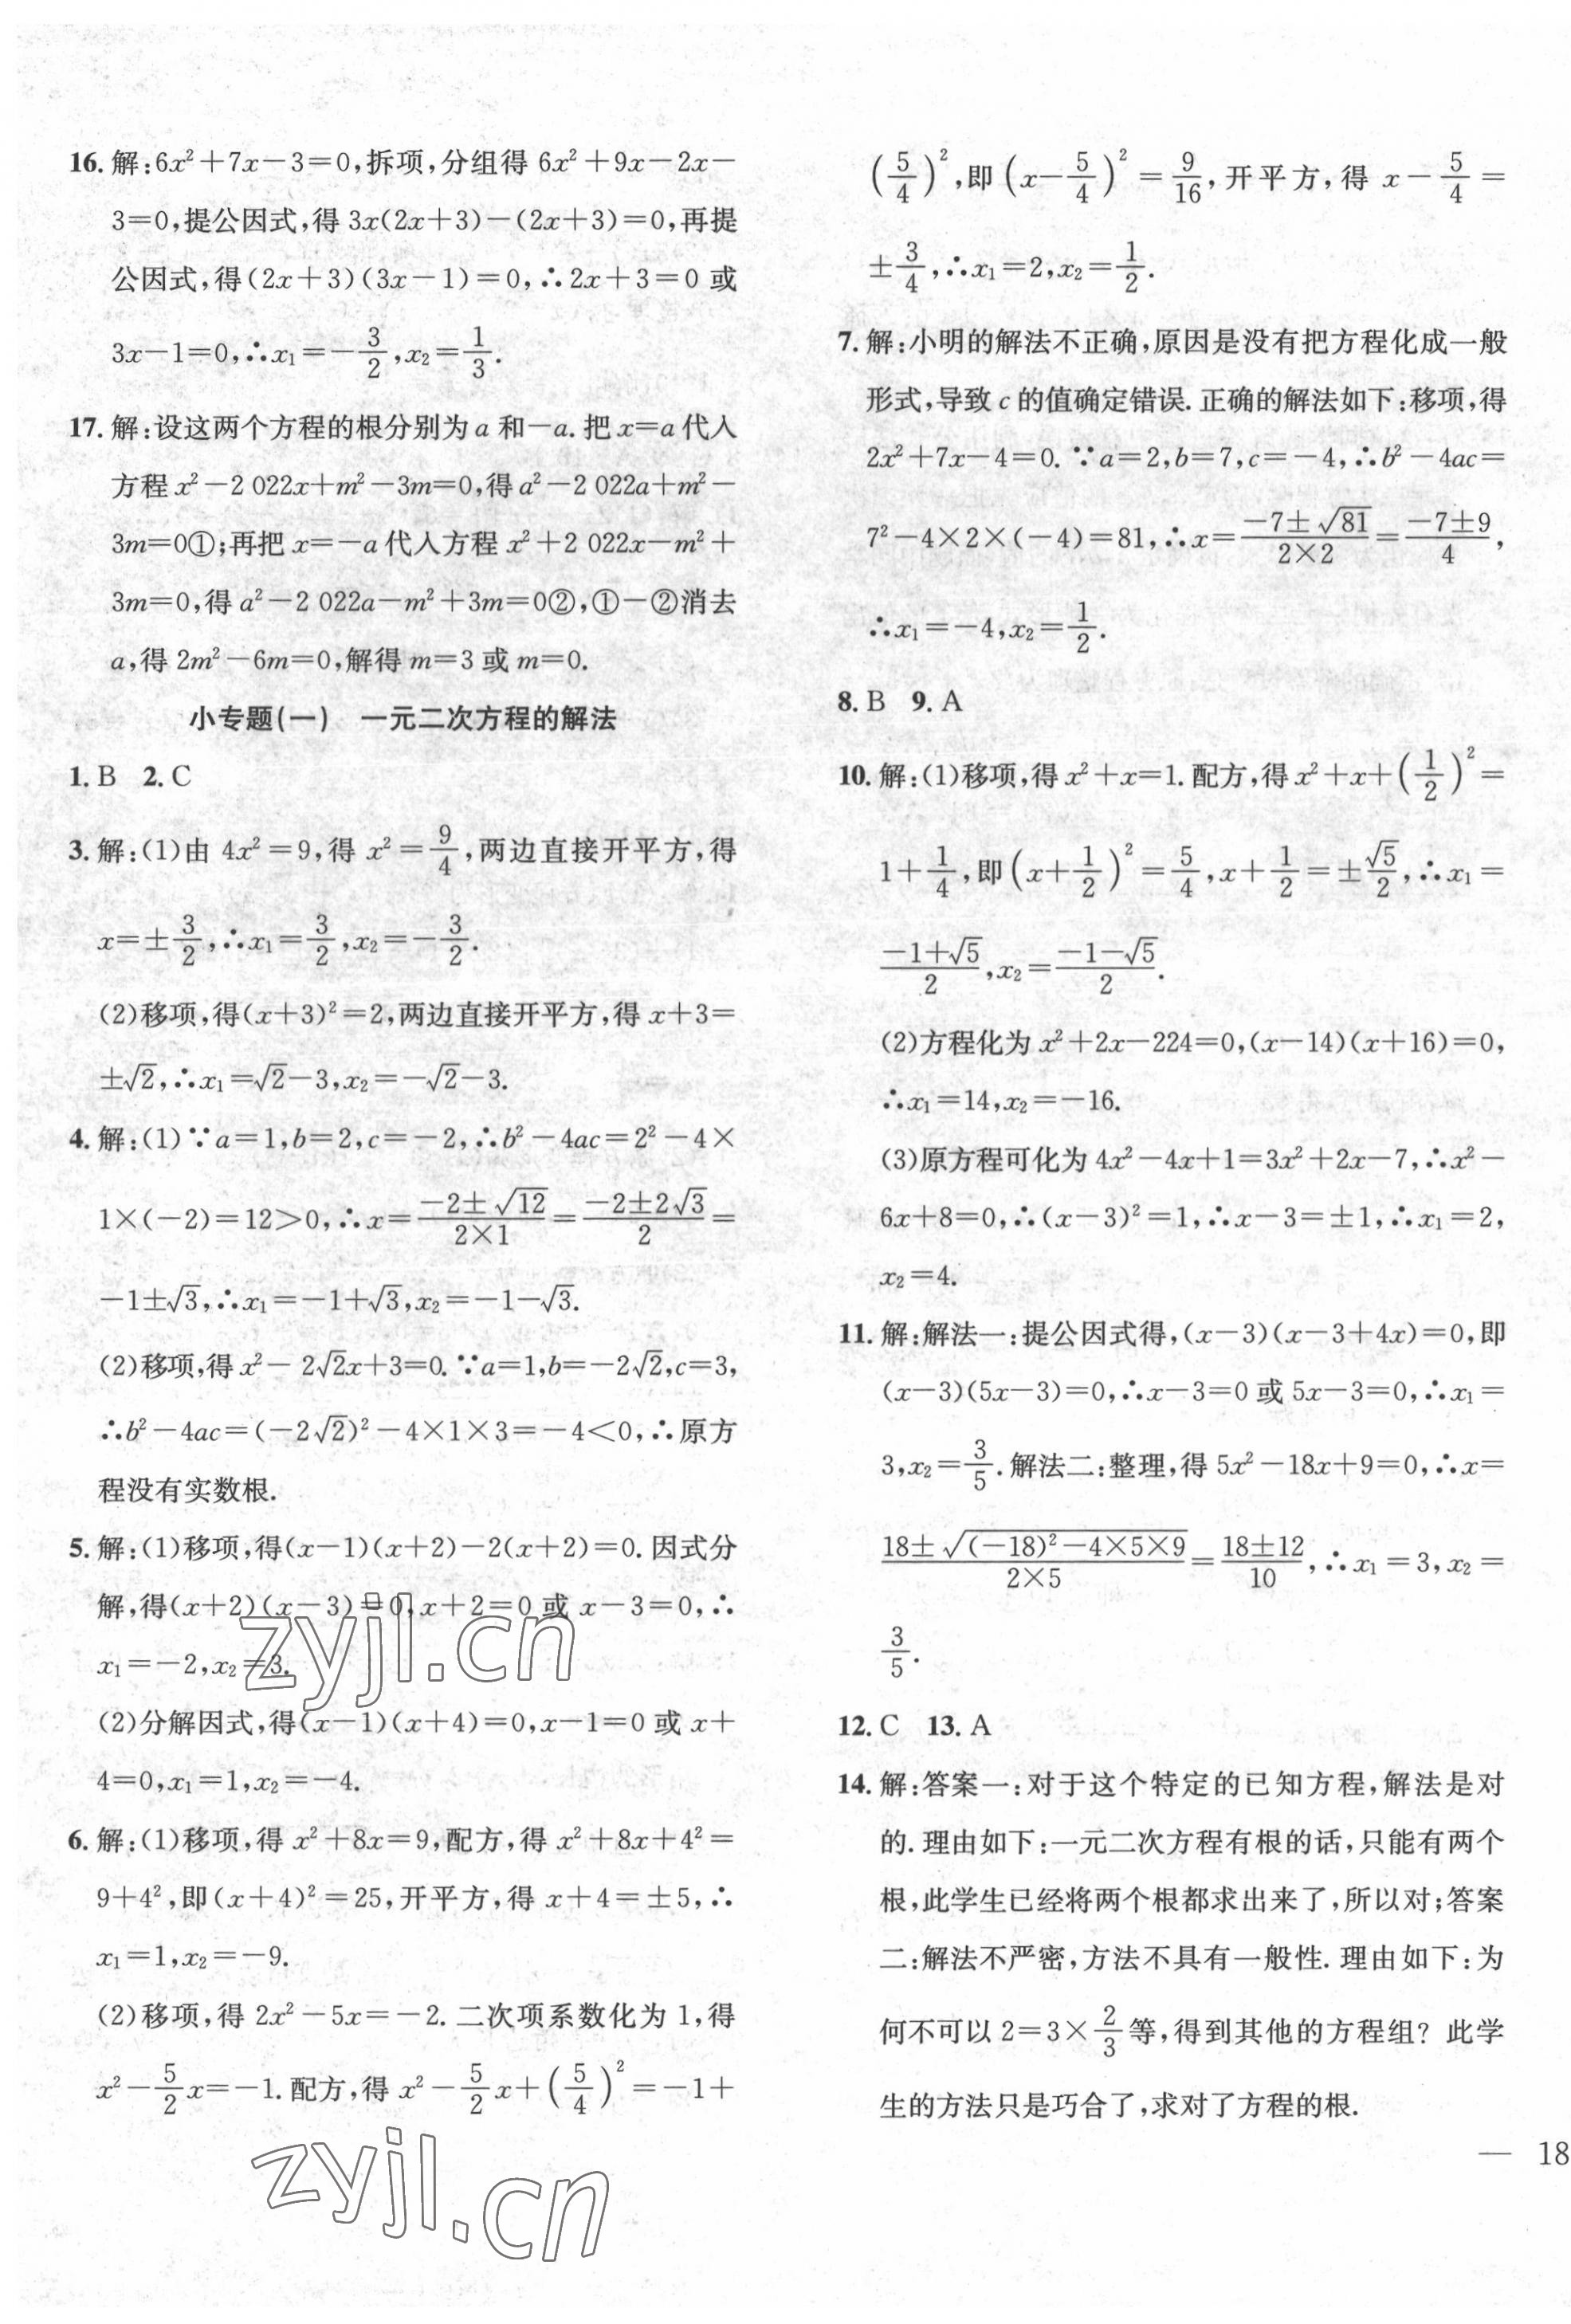 16. 解:6x²+7x-3=0,拆项,分组得 6x²+9x-2x-
3=0,提公因式,得 3x(2x+3)-(2x+3)=0,再提
公因式,得(2x+3)(3x-1)=0,∴2x+3=0 或
3x-1=0,∴x₁=-3/2,x₂=1/3.
17. 解:设这两个方程的根分别为 a 和-a. 把 x=a 代入
方程 x²-2 022x+m²-3m=0,得 a²-2 022a+m²-
3m=0①;再把 x=-a 代入方程 x²+2 022x-m²+
3m=0,得 a²-2 022a-m²+3m=0②,①-②消去
a,得 2m²-6m=0,解得 m=3 或 m=0.
小专题(一) 一元二次方程的解法
1. B 2. C
3. 解:(1)由 4x²=9,得 x²=9/4,两边直接开平方,得
x=±3/2,∴x₁=3/2,x₂=-3/2.
(2)移项,得(x+3)²=2,两边直接开平方,得 x+3=
±√2,∴x₁=√2-3,x₂=-√2-3.
4. 解:(1)∵a=1,b=2,c=-2,∴b²-4ac=2²-4×
1×(-2)=12>0,∴x=(-2±√12)/(2×1)=(-2±2√3)/2=
-1±√3,∴x₁=-1+√3,x₂=-1-√3.
(2)移项,得 x²-2√2x+3=0. ∵a=1,b=-2√2,c=3,
∴b²-4ac=(-2√2)²-4×1×3=-4<0,∴原方
程没有实数根.
5. 解:(1)移项,得(x-1)(x+2)-2(x+2)=0. 因式分
解,得(x+2)(x-3)=0,x+2=0 或 x-3=0,∴
x₁=-2,x₂=3.
(2)分解因式,得(x-1)(x+4)=0,x-1=0 或 x+
4=0,x₁=1,x₂=-4.
6. 解:(1)移项,得 x²+8x=9,配方,得 x²+8x+4²=
9+4²,即(x+4)²=25,开平方,得 x+4=±5,∴
x₁=1,x₂=-9.
(2)移项,得 2x²-5x=-2. 二次项系数化为 1,得
x²-5/2x=-1. 配方,得 x²-5/2x+(5/4)²=-1+
(5/4)²,即(x-5/4)²=9/16,开平方,得 x-5/4=
±3/4,∴x₁=2,x₂=1/2.
7. 解:小明的解法不正确,原因是没有把方程化成一般
形式,导致 c 的值确定错误. 正确的解法如下:移项,得
2x²+7x-4=0. ∵a=2,b=7,c=-4,∴b²-4ac=
7²-4×2×(-4)=81,∴x=(-7±√81)/(2×2)=(-7±9)/4,
∴x₁=-4,x₂=1/2.
8. B 9. A
10. 解:(1)移项,得 x²+x=1. 配方,得 x²+x+(1/2)²=
1+1/4,即(x+1/2)²=5/4,x+1/2=±√5/2,∴x₁=
(-1+√5)/2,x₂=(-1-√5)/2.
(2)方程化为 x²+2x-224=0,(x-14)(x+16)=0,
∴x₁=14,x₂=-16.
(3)原方程可化为 4x²-4x+1=3x²+2x-7,∴x²-
6x+8=0,∴(x-3)²=1,∴x-3=±1,∴x₁=2,
x₂=4.
11. 解:解法一:提公因式得,(x-3)(x-3+4x)=0,即
(x-3)(5x-3)=0,∴x-3=0 或 5x-3=0,∴x₁=
3,x₂=3/5. 解法二:整理,得 5x²-18x+9=0,∴x=
(18±√((-18)²-4×5×9))/(2×5)=(18±12)/10,∴x₁=3,x₂=
3/5.
12. C 13. A
14. 解:答案一:对于这个特定的已知方程,解法是对
的. 理由如下:一元二次方程有根的话,只能有两个
根,此学生已经将两个根都求出来了,所以对;答案
二:解法不严密,方法不具有一般性. 理由如下:为
何不可以 2=3×2/3等,得到其他的方程组? 此学
生的方法只是巧合了,求对了方程的根.
— 18
zyjl.cn
zyjl.cn